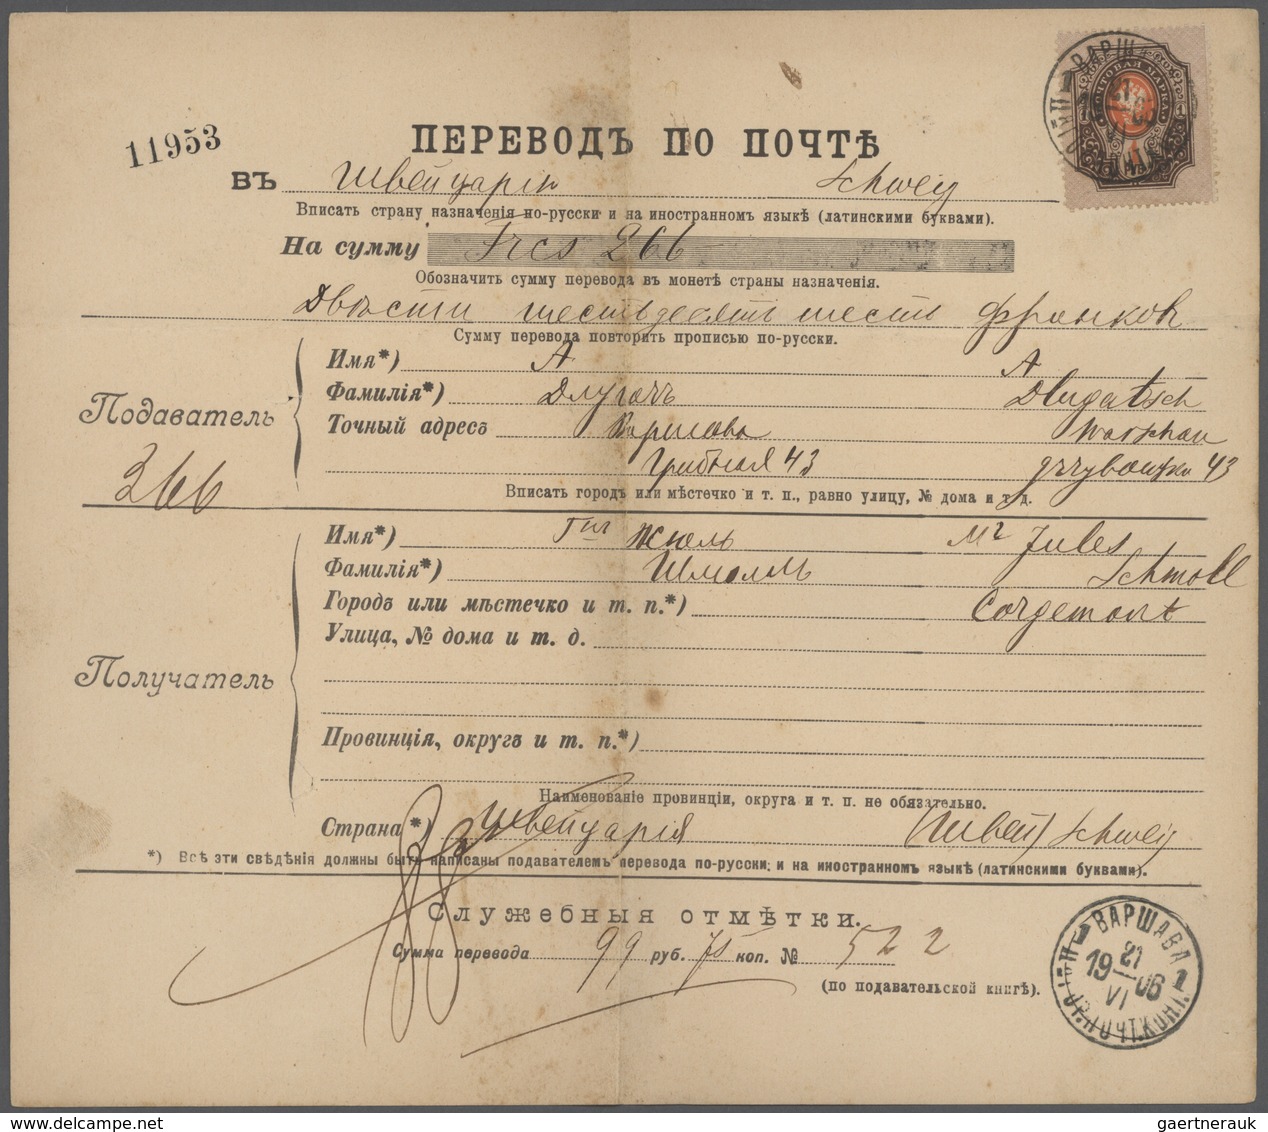 11953
ПЕРЕВОДЪ ПО ПОЧТѢ
ВЪ Швейцарію Schweiz
Вписать страну назначенія по-русски и на иностранномъ языкѣ (латинскими буквами).
На сумму Frcs 266
Обозначить сумму перевода въ монетѣ страны назначенія.
Двѣсти шестьдесятъ шесть франковъ
Сумму перевода повторить прописью по-русски.
Подаватель
366
Имя*) А A
Фамилія*) Длугачъ Dlugatsch
Точный адресъ Варшава Warschau
Грибная 43 43
Вписать городъ или мѣстечко и т. п., равно улицу, № дома и т. д.
Получатель
Имя*) Жюль Mr Jules
Фамилія*) Шмолль Schmoll
Городъ или мѣстечко и т. п.*) Corgemont
Улица, № дома и т. д.
Провинція, округъ и т. п.*)
Наименованіе провинціи, округа и т. п. не обязательно.
Страна*) Швейцарія (Швей) Schweiz
*) Всѣ эти свѣдѣнія должны быть написаны подавателемъ перевода по-русски и на иностранномъ языкѣ (латинскими буквами).
СЛУЖЕБНЫЯ ОТМѢТКИ.
Сумма перевода 99 руб. 75 коп. № 522
(по подавательской книгѣ).
ВАРШАВА
21
19 06
VI
1 1
ПОЧТ. КОНТ.
ВАРШ
ПОЧТОВАЯ МАРКА
gaertnerauk @ www.delcampe.net